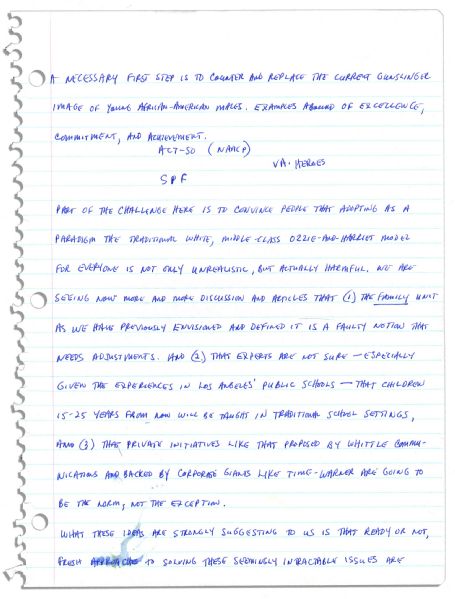 A NECESSARY FIRST STEP IS TO COUNTER AND REPLACE THE CURRENT GUNSLINGER
IMAGE OF YOUNG AFRICAN-AMERICAN MALES. EXAMPLES ABOUND OF EXCELLENCE,
COMMITMENT, AND ACHIEVEMENT.
ACT-SO (NAACP)
VA. HEROES
SPF
PART OF THE CHALLENGE HERE IS TO CONVINCE PEOPLE THAT ADOPTING AS A
PARADIGM THE TRADITIONAL WHITE, MIDDLE-CLASS OZZIE-AND-HARRIET MODEL
FOR EVERYONE IS NOT ONLY UNREALISTIC, BUT ACTUALLY HARMFUL. WE ARE
SEEING NOW MORE AND MORE DISCUSSION AND ARTICLES THAT (1) THE FAMILY UNIT
AS WE HAVE PREVIOUSLY ENVISIONED AND DEFINED IT IS A FAULTY NOTION THAT
NEEDS ADJUSTMENTS. AND (2) THAT EXPERTS ARE NOT SURE — ESPECIALLY
GIVEN THE EXPERIENCES IN LOS ANGELES' PUBLIC SCHOOLS — THAT CHILDREN
15-25 YEARS FROM NOW WILL BE TAUGHT IN TRADITIONAL SCHOOL SETTINGS,
AND (3) THAT PRIVATE INITIATIVES LIKE THAT PROPOSED BY WHITTLE COMMU-
NICATIONS AND BACKED BY CORPORATE GIANTS LIKE TIME-WARNER ARE GOING TO
BE THE NORM, NOT THE EXCEPTION.
WHAT THESE IDEAS ARE STRONGLY SUGGESTING TO US IS THAT READY OR NOT,
FRESH APPROACHES TO SOLVING THESE SEEMINGLY INTRACTABLE ISSUES ARE